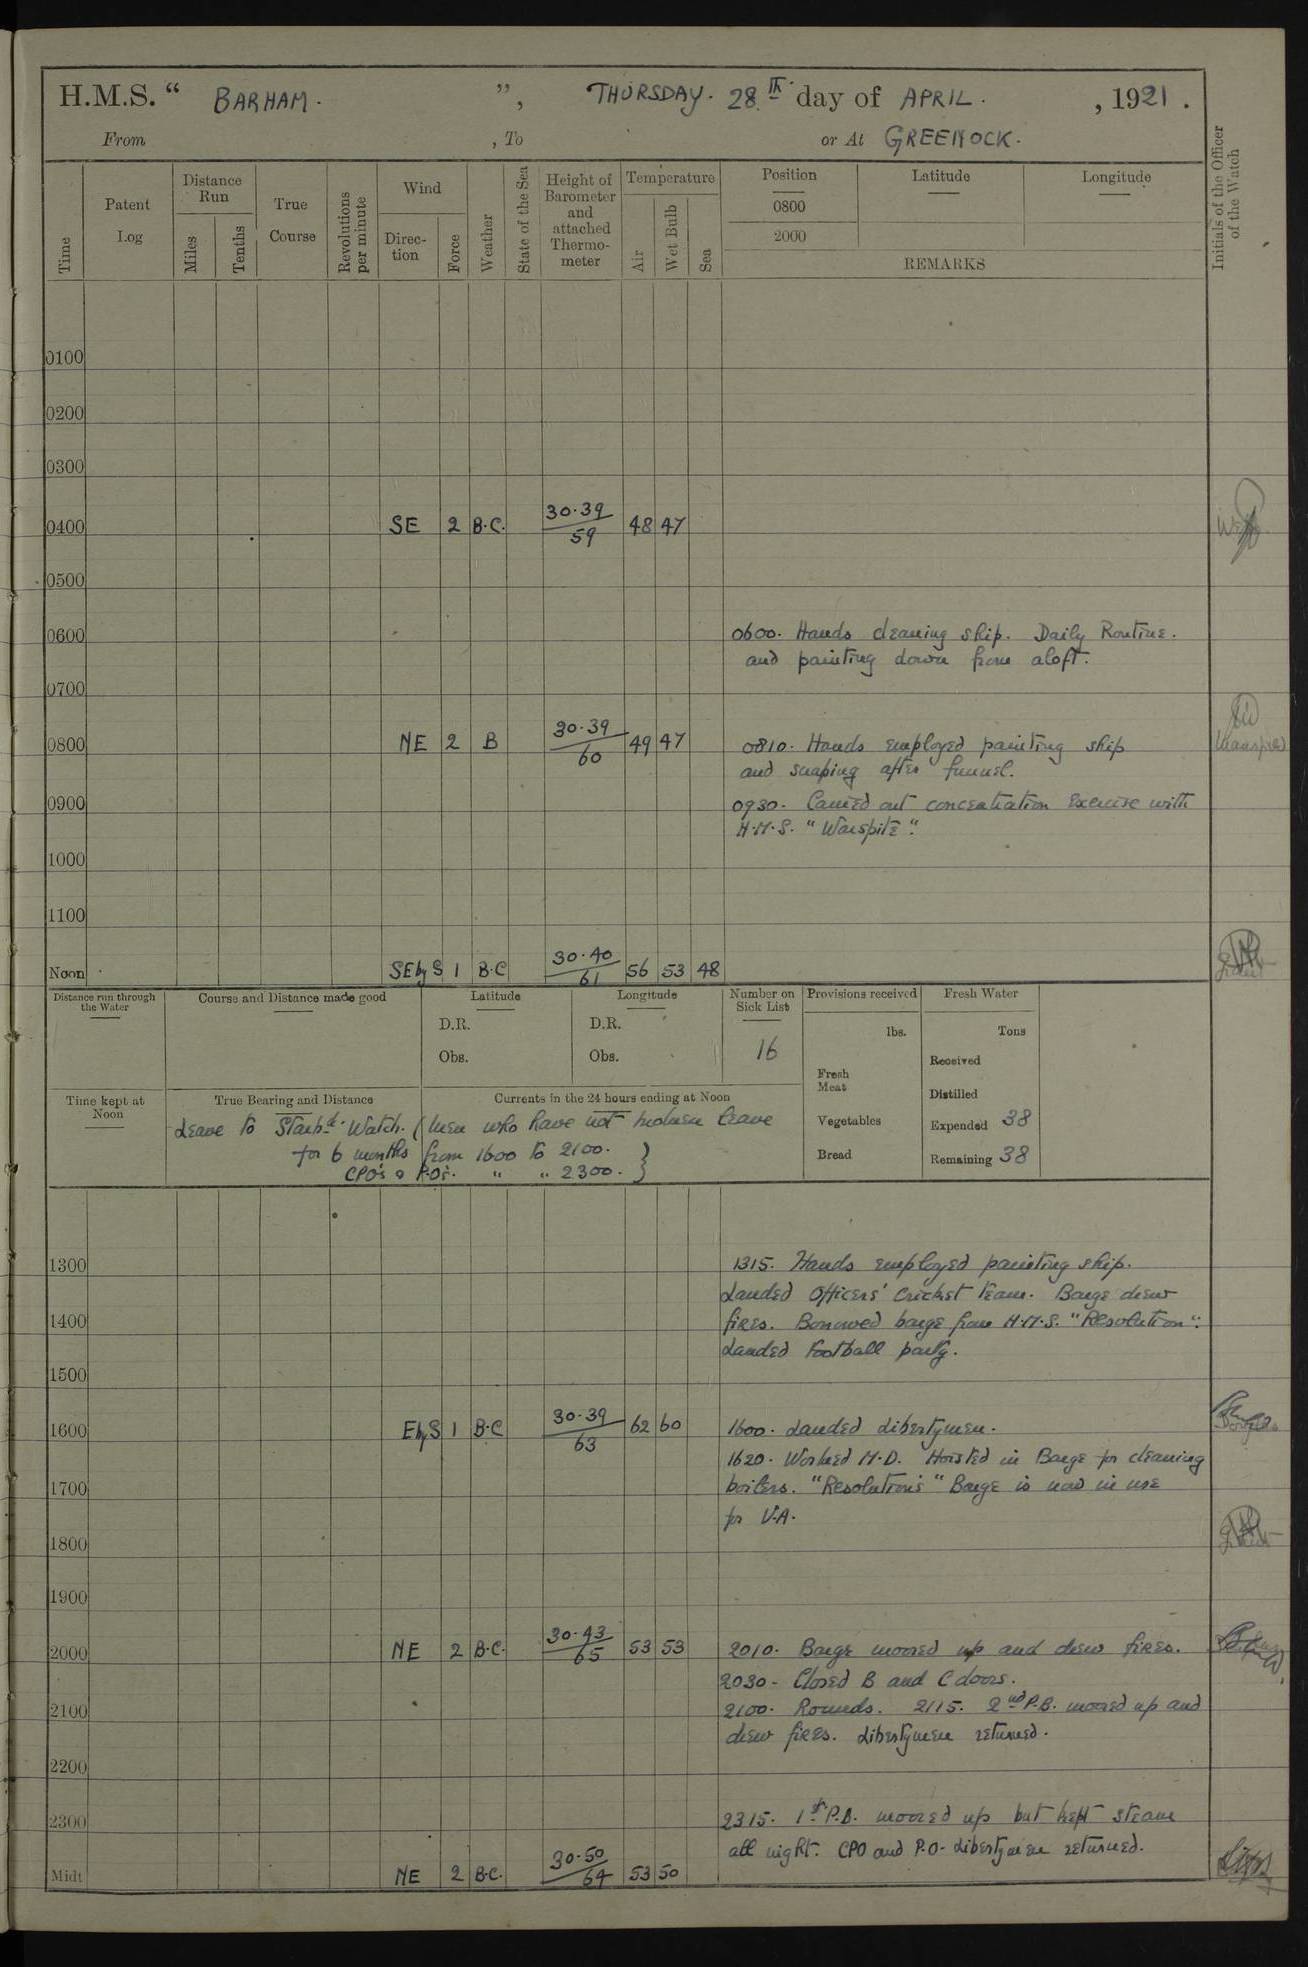 H.M.S. “ BARHAM. ”, THURSDAY. 28.TH day of APRIL. , 1921.
From , To or At GREENOCK.
Time
Patent Log
Distance Run
Miles
Tenths
True Course
Revolutions per minute
Wind
Direc-tion
Force
Weather
State of the Sea
Height of Barometer and attached Thermo-meter
Temperature
Air
Wet Bulb
Sea
Position
0800
2000
Latitude
Longitude
REMARKS
Initials of the Officer of the Watch
0100
0200
0300
0400 SE 2 B.C. 30.39 59 48 47
0500
0600 0600. Hands cleaning ship. Daily Routine.
and painting down from aloft.
0700
0800 NE 2 B 30.39 60 49 47 0810. Hands employed painting ship
and scraping after funnel.
0900 0930. Carried out concentration Exercise with
H.M.S. "Warspite".
1000
1100
Noon SE by S 1 B.C 30.40 61 56 53 48
Distance run through the Water
Course and Distance made good
Latitude
D.R.
Obs.
Longitude
D.R.
Obs.
Number on Sick List
16
Provisions received
lbs.
Fresh Meat
Vegetables
Bread
Fresh Water
Tons
Received
Distilled
Expended 38
Remaining 38
Time kept at Noon
True Bearing and Distance
Currents in the 24 hours ending at Noon
Leave to Starbd. Watch. (Men who have not broken leave
for 6 months from 1600 to 2100.
CPO's & P.O's. " " 2300. )
1300 1315. Hands employed painting ship.
Landed Officers' Cricket Team. Barge drew
1400 fires. Borrowed barge from H.M.S. "Resolution".
Landed Football party.
1500
1600 E by S 1 B.C 30.39 63 62 60 1600. Landed Libertymen.
1620. Worked M.D. Hoisted in Barge for cleaning
1700 boilers. "Resolution's" Barge is now in use
for V.A.
1800
1900
2000 NE 2 B.C. 30.43 65 53 53 2010. Barge moored up and drew fires.
2030. Closed B and C doors.
2100 2100. Rounds. 2115. 2nd P.B. moored up and
drew fires. Libertymen returned.
2200
2300 2315. 1st P.B. moored up but kept steam
all night. CPO and P.O. Libertymen returned.
Midt NE 2 B.C. 30.50 64 53 50